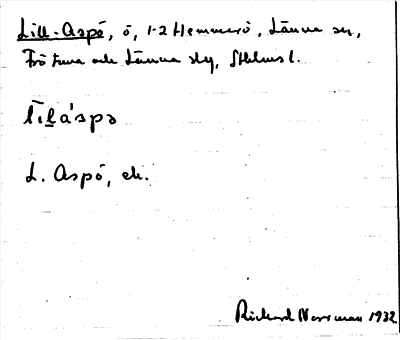 Lill-Aspö, ö, 1-2 Hemmerö, Länna sn,
Frötuna och Länna skg, Sthlms l.
lìlˈáspə
L. Aspö, ek.
Richard Norrman 1932